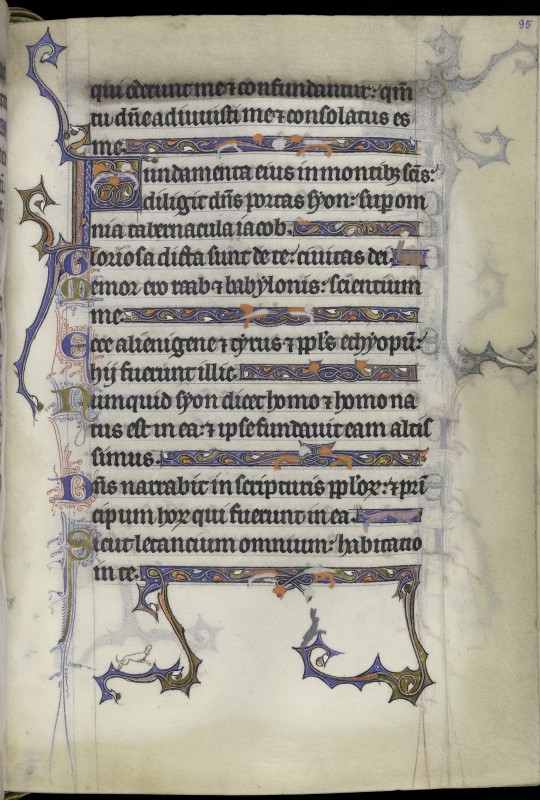 95
qui oderunt me ⁊ confundantur: qm̄
tu dñe adiuuisti me ⁊ consolatus es
me.
Fundamenta eius in montibꝫ scīs:
diligit dn̄s portas syon: sup om
nia tabernacula iacob.
Gloriosa dicta sunt de te: ciuitas dei.
Memor ero raab ⁊ babylonis: scientium
me.
Ecce alienigene ⁊ tyrus ⁊ ppl̄s ethyopū:
hij fuerunt illic.
Nunquid syon dicet homo ⁊ homo na
tus est in ea: ⁊ ipse fundauit eam altis
simus.
Dn̄s narrabit in scripturis ppl̓oꝝ: ⁊ prī
cipum hoꝝ qui fuerunt in ea.
Sicut letantium omnium: habitatio
in te.